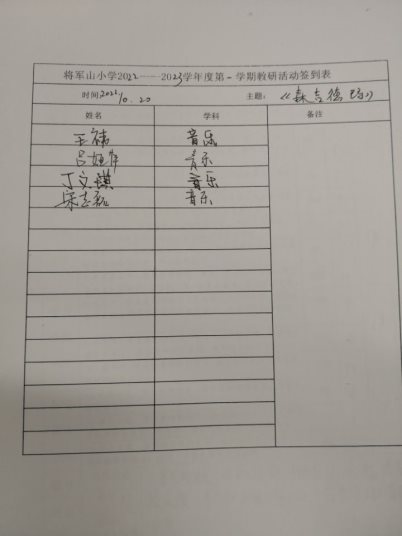 将军山小学2022——2023学年度第一学期教研活动签到表
时间2022 10.20 主题:《森吉德玛》
姓名 学科 备注
王祎 音乐
吕 音乐
丁文琪 音乐
宋志磊 音乐